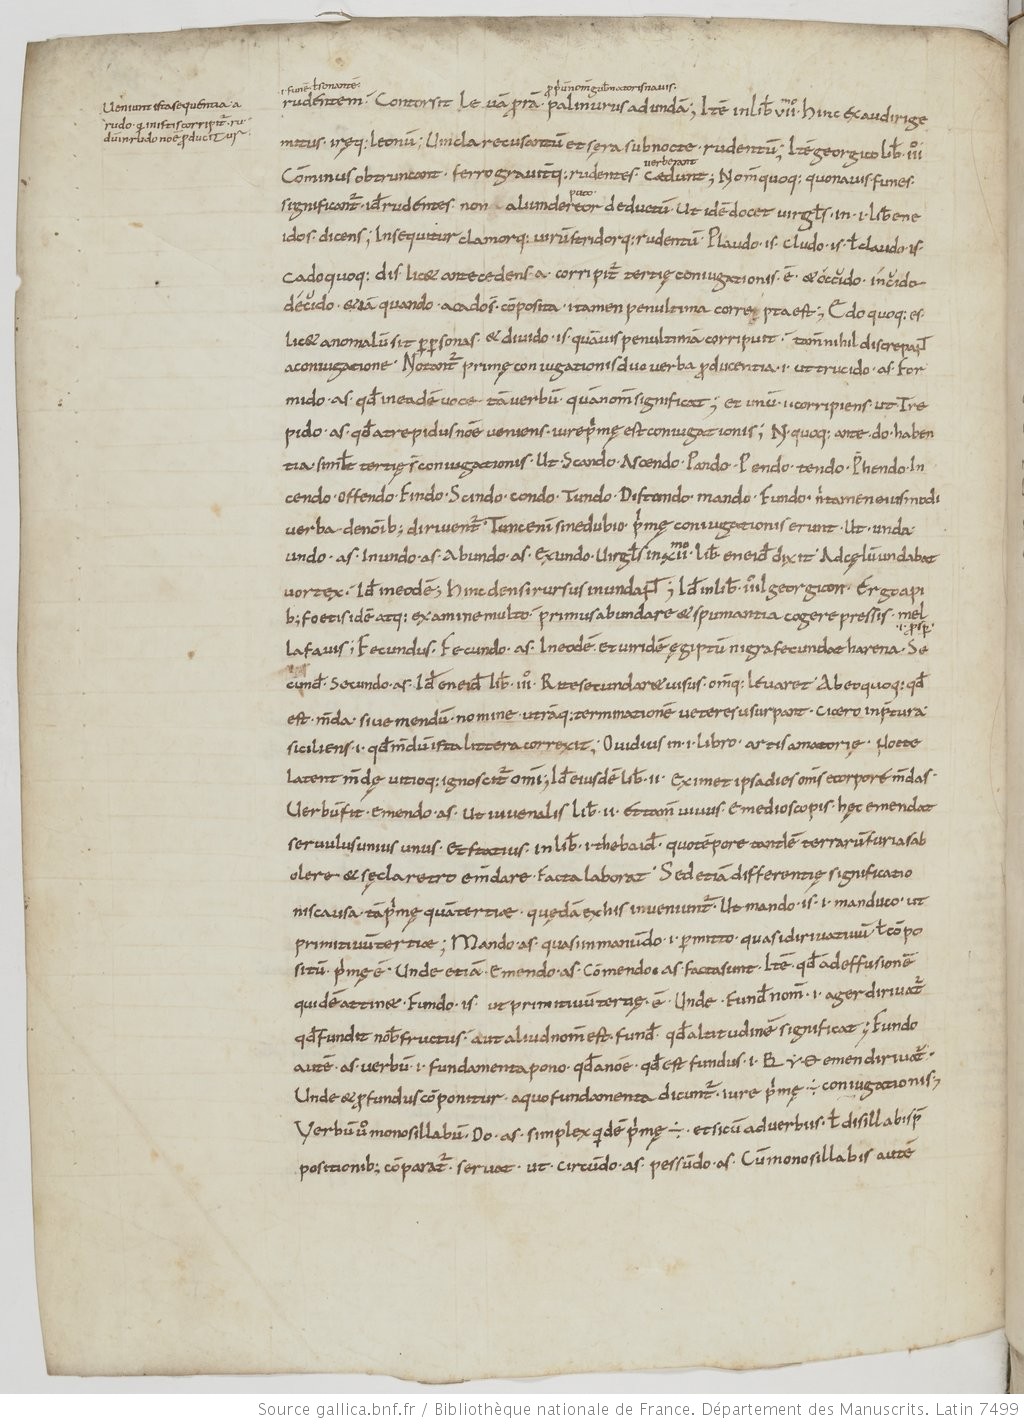 Ueniunt ista sequentia a
rudo · q in istis corripit̃ · ru-
dũ in rudo noẽ producit̃ ur
i funẽ · ł sonantẽ ·
ꝓpriũ nom̃ gub̃natoris nauis ·
rudentem · Contorsit leuã prorã · palinurus ad undã ; Itẽ in lib̃ vii mo · hinc exaudiri ge
mitus · iręq: leonũ ; Uincla recusantũ et sera sub nocte · rudentũ ; Itẽ georgico lib̃ · iii
uerberant
Cõminus obtruncant · ferro grauitq: rudentes · cędunt ; Nom̃ quoq: quo nauis · funes ·
puto ·
significant̃ · id rudentes · non aliunde reor deductũ · Ut idẽ docet uirgł s · in · i · lib̃ ene
idos · dicens ; Insequitur clamorq: uirũ stridorq: rudentũ · Plaudo · is · cludo · is · ł claudo · is ·
Cado quoq: dis · lic& antecedens · a · corripit̃ tertię coniugationis · ẽ · & occido · incido
decido · & iã quando · a cado · s · cõposita · i tamen penultima correpta est ; Edo quoq: es ·
lic& anomalũ sit p̱ personas · & diuido · is · quãuis penultimã corripuit · tam̃ nihil discrepaɫ
a coniugatione · Notant̃ primę coniugationis duo uerba ꝓducentia · i · ut trucido · as · For
mido · as · qd̃ in eadẽ uoce tã uerbũ · quã nom̃ significat ; et unũ · i corripiens · ut Tre
pido · as · qd̃ a trepidus noẽ ueniens · iure p̃mę est coniugationis ; N · quoq: ante · do · haben
tia · simił tertię s̃ coniugationis · Ut · Scando · Ascendo · Pando · Pendo · tendo · P̃hendo · In
cendo · Offendo · Findo · Scindo · condo · Tundo · Distendo · mando · Fundo · ñ tamen eiusmodi
uerba · denoib; diriuent̃ · Tunc eni sine dubio · p̃mę coniugationis erunt · Ut · unda
undo · as · Inundo · as · Abundo · as · Exundo · Uirgł s in xii mo · lib̃ eneid̃ dixit · Ad cęlũ undabat
uortex · Id̃ in eodẽ ; hinc densi rursus inundaɫ ; Id̃ in lib̃ · iiii georgicon · Ergo api
b; foetis idẽ atq: examine multo · primus abundare & spumantia cogere pressis · mel
i · ꝓsp̃
la fauis ; Fecundus · Fecundo · as · In eodẽ · et uiridẽ ęgiptũ nigra fecundat harena · Se
cund̃ · Secundo · as · Id̃ eneid̃ lib̃ · iii · Rite secundare& uisus · om̃q: leuaret · Ab eo quoq: qd̃
est · m̃da · siue mendũ · nomine · utrãq: terminationẽ ueteres usurpant · cicero in p̃tura
siciliens · i · qd̃ m̃dũ ista littera correxit ; Ouidius in · i · libro · artis amatorię · Nocte
latent m̃dę uitioq: ignoscit̃ omĩ ; Id̃ eiusdẽ lib̃ · ii · Eximet ipsa dies om̃s e corpore m̃das ·
Uerbũ fit · emendo · as · ut iuuenalis lib̃ · ii · ettam̃ uiuus · Emedio scopis hęc emendat
seruulus unius unus · Et statius · in lib̃ · i · thebaid̃ · quo tẽpore tandẽ terrarũ furias ab
olere · & sęcla retro em̃dare · Facta laborat · Sed etiã differentię significatio
nis causa · tã p̃mę quã tertiae · quędã ex his inueniunt̃ · Ut mando · is · i · manduco · ut
primitiuũ tertiae ; Mando · as · quasi in manũ do · i · p̱mitto · quasi diriuatiuũ · ł cõpo
sitũ · p̃mę ẽ · Unde etiã · Emendo · as · Cõmendo · as · facta sunt · Itẽ · qd̃ ad effusionẽ
quidẽ attin& · Fundo · is · ut primitiuũ tertię · ẽ · Unde · Fund̃ nom̃ · i · ager diriuat̃
qd̃ fundit nob̃ fructus · aut aliud nom̃ est · fund̃ · qd̃ altitudinẽ significat ; Fundo
autẽ · as · uerbũ · i · fundamenta pono · qd̃ a noẽ · qd̃ est fundus · i · B Y Θ emen diriuat̃ ·
Unde & ꝓfundus cõponitur · a quo fundamenta dicunt̃ · iure p̃mę ÷ coniugationis ;
Uerbũ ũ monosillabũ · Do · as · simplex qidẽ p̃mę ÷ · et si cũ aduerbiis · ł disillabis p̃
positionib; cõparat̃ · seruat · ut · circũdo · as · pessũdo · as · Cũ monosillabis autẽ
Source gallica.bnf.fr / Bibliothèque nationale de France. Département des Manuscrits. Latin 7499